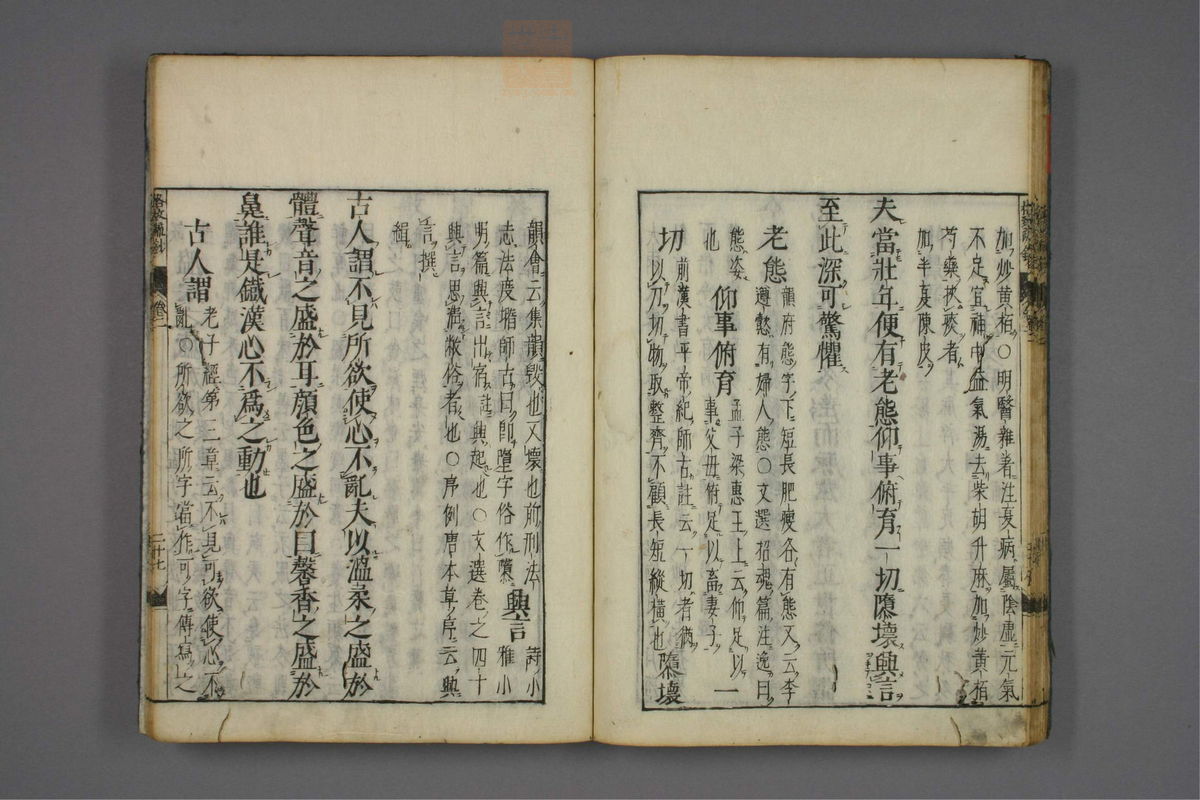 加炒黄栢○明醫雜著注夏病屬陰虚元氣
不足宜神中益氣湯去柴胡升麻加炒黄栢
芍藥挾痰者
加半夏陳皮
夫當壯年便有老態仰事俯育一切隳壞興言
至此深可驚懼
老態 韻府態字下短長肥瘦各有態又云李
遵愁有婦人態○文選招魂篇注逸曰
態姿
也 仰事俯育 孟子梁惠王上云仰足以
事父母俯足以畜妻子 一
切 前漢書平帝紀師古註云一切者猶
以刀切物取整齊不顧長短縱橫也 隳壞
韻會云集韻毀也又壞也前刑法
志法度墮師古曰卽墮字俗作隳 興言 詩小
雅小
明篇興言出宿註興起也○文選卷之四十
興言思繼敝俗者也○序例唐本草序云興
言撰
緝
古人謂不見所欲使心不亂夫以溫柔之盛於
體聲音之盛於耳顏色之盛於目馨香之盛於
鼻誰是鐵漢心不爲之動也
古人謂 老子經第三章云不見可欲使心不
亂○所欲之所字當作可字傳寫之
卷二
二十七